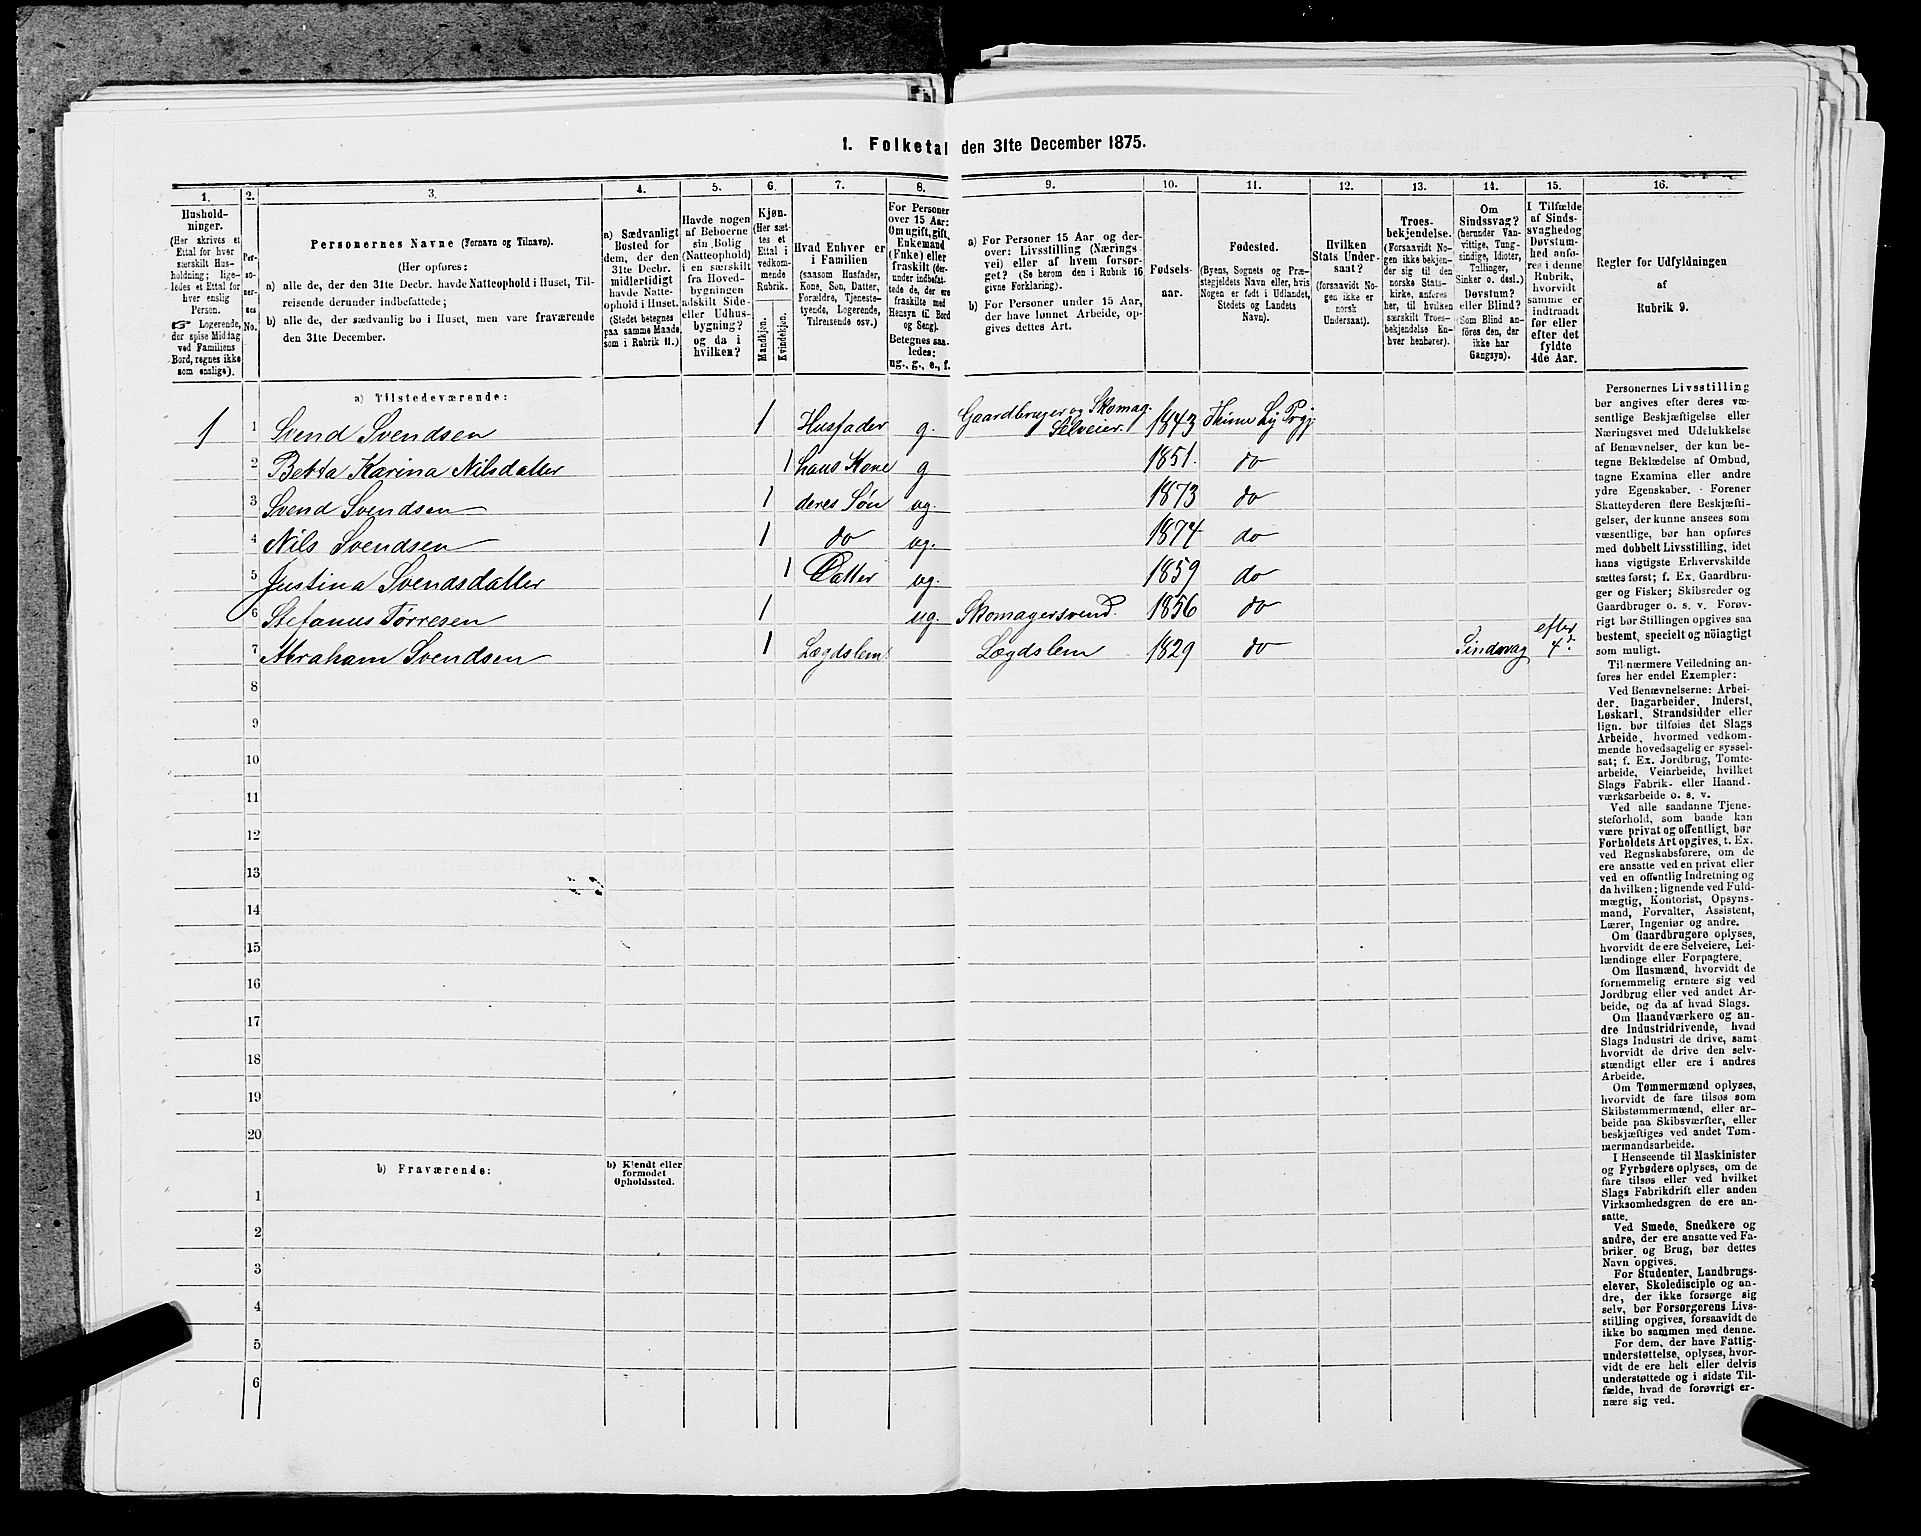 1. Folketal den 31te December 1875.
1. 2. 3. 4. 5. 6. 7. 8. 9. 10. 11. 12. 13. 14. 15. 16.
Hushold-
ninger.
(Her skrives et
Ettal for hver
særskilt Hus-
holdning; lige-
ledes et Ettal for
hver enslig
Person.
☞ Logerende,
der spise Middag
ved Familiens
Bord, regnes ikke
som enslige).
Per-
so-
ner-
nes
No.
Personernes Navne (Fornavn og Tilnavn).
(Her opføres:
a) alle de, der den 31te Decbr. havde Natteophold i Huset, Til-
reisende derunder indbefattede;
b) alle de, der sædvanlig bo i Huset, men vare fraværende
den 31te December.
a) Sædvanligt
Bosted for
dem, der den
31te Decbr.
midlertidigt
havde Natte-
ophold i Huset.
(Stedet betegnes
paa samme Maade,
som i Rubrik 11.)
Havde nogen
af Beboerne
sin Bolig
(Natteophold)
i en særskilt
fra Hoved-
bygningen
adskilt Side-
eller Udhus-
bygning?
og da i
hvilken?
Kjøn.
(Her sæt-
tes et
Ettal i
vedkom-
mende
Rubrik.
Mandkjøn.
Kvindekjøn.
Hvad Enhver er
i Familien
(saasom Husfader,
Kone, Søn, Datter,
Forældre, Tjeneste-
tyende, Logerende,
Tilreisende osv.)
For Personer
over 15 Aar:
Om ugift, gift,
Enkemand
(Enke) eller
fraskilt (der-
under indbefat-
tede de, der ere
fraskilte med
Hensyn til Bord
og Seng).
Betegnes saa-
ledes:
ug., g., e., f.
a) For Personer 15 Aar og der-
over: Livsstilling (Nærings-
vei) eller af hvem forsør-
get? (Se herom den i Rubrik 16
givne Forklaring).
b) For Personer under 15 Aar,
der have lønnet Arbeide, op-
gives dettes Art.
Fødsels-
aar.
Fødested.
(Byens, Sognets og Præ-
stegjeldets Navn eller, hvis
Nogen er født i Udlandet,
Stedets og Landets
Navn).
Hvilken
Stats Under-
saat?
(forsaavidt No-
gen ikke er
norsk
Undersaat).
Troes-
bekjendelse.
(Forsaavidt No-
gen ikke bekjen-
der sig til den
norske Stats-
kirke, anføres
her, til hvilken
særskilt Troes-
bekjendelse En-
hver henhører).
Om
Sindssvag?
(herunder Van-
vittige, Tung-
sindige, Idioter,
Tullinger,
Sinker o. desl.)
Døvstum?
eller Blind?
(Som Blind an-
føres den, der
ikke har
Gangsyn).
I Tilfælde
af Sinds-
svaghed og
Døvstum-
hed anfø-
res i denne
Rubrik,
hvorvidt
samme er
indtraadt
før eller
efter det
fyldte
4de Aar.
Regler for Udfyldningen
af
Rubrik 9.
a) Tilstedeværende:
1 1 Svend Svendsen 1 Husfader g. Gaardbruger og Skomag. Selveier. 1843 Thime Ly Prgj
2 Betta Karina Nilsdatter 1 hans Kone g 1851. do
3 Svend Svendsen 1 deres Søn ug. 1873 do
4 Nils Svendsen 1 do ug. 1874 do
5 Justina Svendsdatter 1 Datter ug. 1859 do
6 Stefanus Tørresen 1 ug. Skomagersvend. 1856 do
7 Abraham Svendsen 1 Lægdslem Lægdslem 1829 do Sindsvag efter 4d.
8
9
10
11
12
13
14
15
16
17
18
19
20
b) Fraværende:
b) Kjendt eller
formodet
Opholdssted.
1
2
3
4
5
6
Personernes Livsstilling
bør angives efter deres væ-
sentlige Beskjæftigelse eller
Næringsvei med Udelukkelse
af Benævnelser, der kun be-
tegne Beklædelse af Ombud,
tagne Examina eller andre
ydre Egenskaber. Forener
Skatteyderen flere Beskjæfti-
gelser, der kunne ansees som
væsentlige, bør han opføres
med dobbelt Livsstilling, idet
hans vigtigste Erhvervskilde
sættes først; f. Ex. Gaardbru-
ger og Fisker; Skibsreder og
Gaardbruger o. s. v. Forøv-
rigt bør Stillingen opgives saa
bestemt, specielt og nöiagtigt
som muligt.
Til nærmere Veiledning an-
føres her endel Exempler:
Ved Benævnelserne: Arbei-
der, Dagarbeider, Inderst,
Løskarl, Strandsidder eller
lign. bør tilføies det Slags
Arbeide, hvormed vedkom-
mende hovedsagelig er syssel-
sat; f. Ex. Jordbrug, Tomte-
arbeide, Veiarbeide, hvilket
Slags Fabrik- eller Haand-
værksarbeide o. s. v.
Ved alle saadanne Tjene-
steforhold, som baade kan
være privat og offentligt, bør
Forholdets Art opgives, t. Ex.
ved Regnskabsførere, om de
ere ansatte ved en privat eller
ved en offentlig Indretning og
da hvilken; lignende ved Fuld-
mægtig, Kontorist, Opsyns-
mand, Forvalter, Assistent,
Lærer, Ingeniør og andre.
Om Gaardbrugere oplyses,
hvorvidt de ere Selveiere, Lei-
lændinge eller Forpagtere.
Om Husmænd, hvorvidt de
fornemmelig ernære sig ved
Jordbrug eller ved andet Ar-
beide, og da af hvad Slags.
Om Haandværkere og an-
dre Industridrivende, hvad
Slags Industri de drive, samt
hvorvidt de drive den selv-
stændigt eller ere i andres
Arbeide.
Om Tømmermænd oplyses,
hvorvidt de fare tilsøs som
Skibstømmermænd, eller ar-
beide paa Skibsværfter, eller
beskjæftiges ved andet Tøm-
mermandsarbeide.
I Henseende til Maskinister
og Fyrbødere oplyses, om de
fare tilsøs eller ved hvilket
Slags Fabrikdrift eller anden
Virksomhedsgren de ere an-
satte.
Ved Smede, Snedkere og
andre, der ere ansatte ved Fa-
briker og Brug, bør dettes
Navn opgives.
For Studenter, Landbrugs-
elever, Skoledisciple og an-
dre, der ikke forsørge sig
selv, bør Forsørgerens Livs-
stilling opgives, forsaavidt de
ikke bo sammen med denne.
For dem, der have Fattig-
understøttelse, oplyses, hvor-
vidt de ere helt eller delvis
understøttede og i sidste Til-
fælde, hvad de forøvrigt er-
nære sig ved.